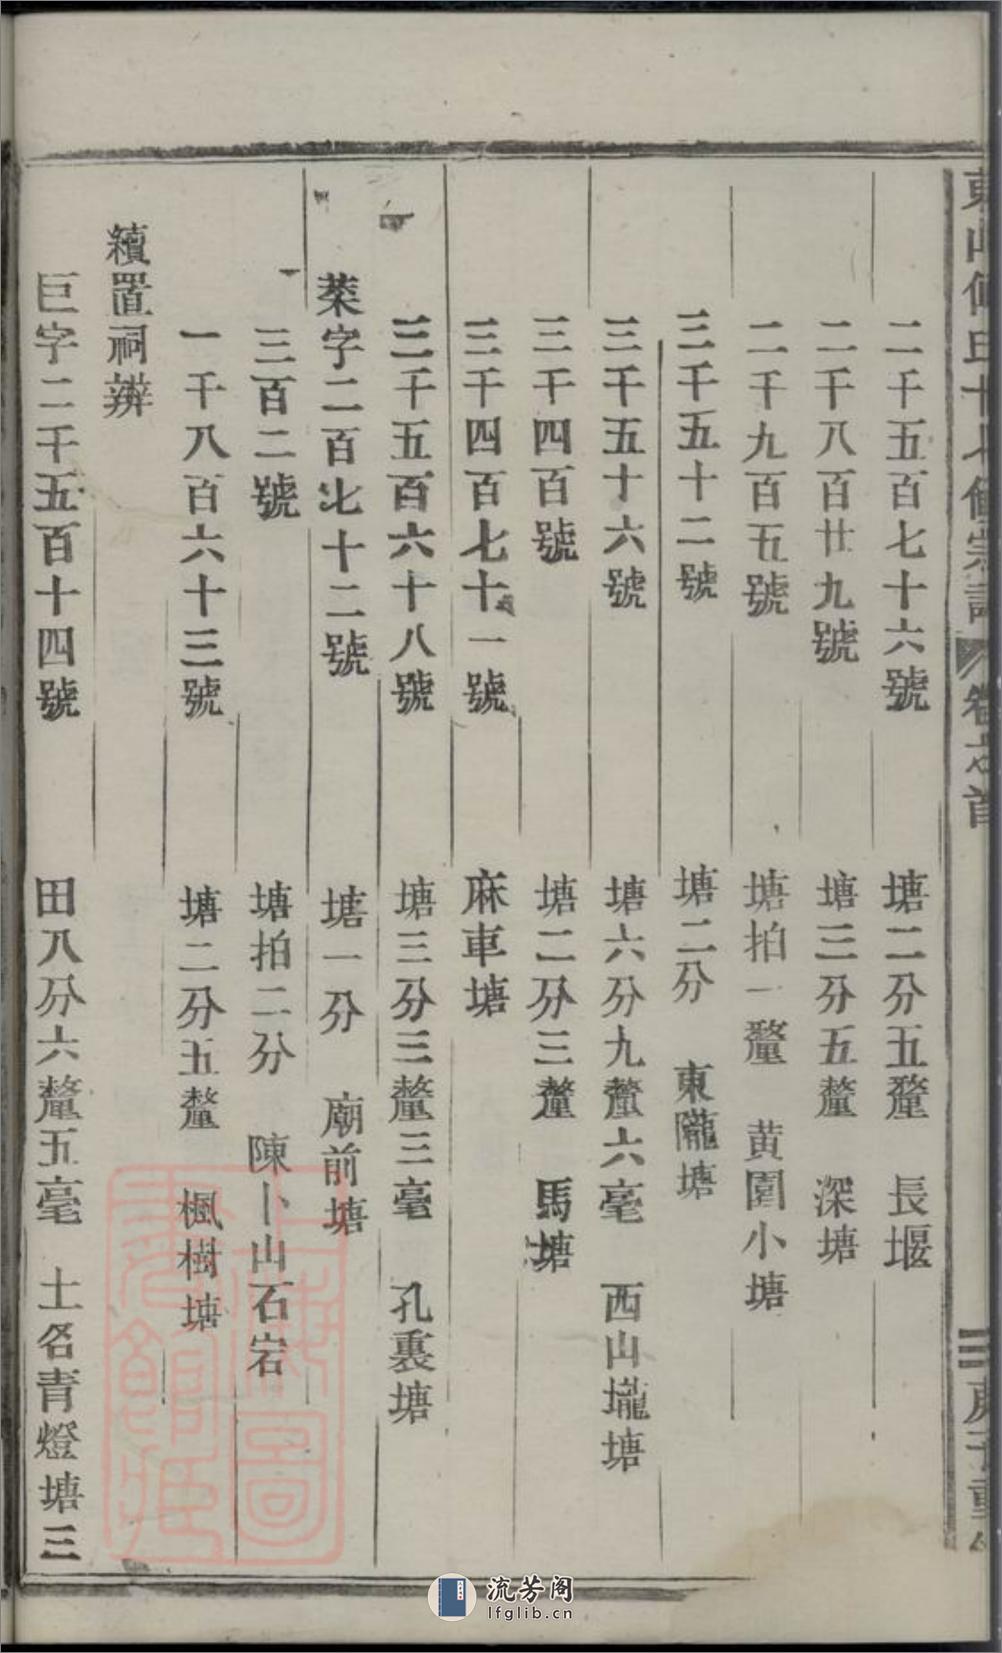 二千五百七十六號　塘二分五釐　長堰
二千八百廿九號　塘三分五釐　深塘
二千九百五號　塘拍一釐　黄園小塘
三千五十二號　塘二分　東隴塘
三千五十六號　塘六分九釐六毫　西山壠塘
三千四百號　塘二分三釐　馬塘
三千四百七十一號　麻車塘
三千五百六十八號　塘三分三釐三毫　孔裏塘
菜字二百七十二號　塘一分　廟前塘
三百二號　塘拍二分　陳卜山石宕
一千八百六十三號　塘二分五釐　楓樹塘
續置祠辨
巨字二千五百十四號　田八分六釐五毫　土名青燈塘三
卷之首
流芳阁
lfglib.cn